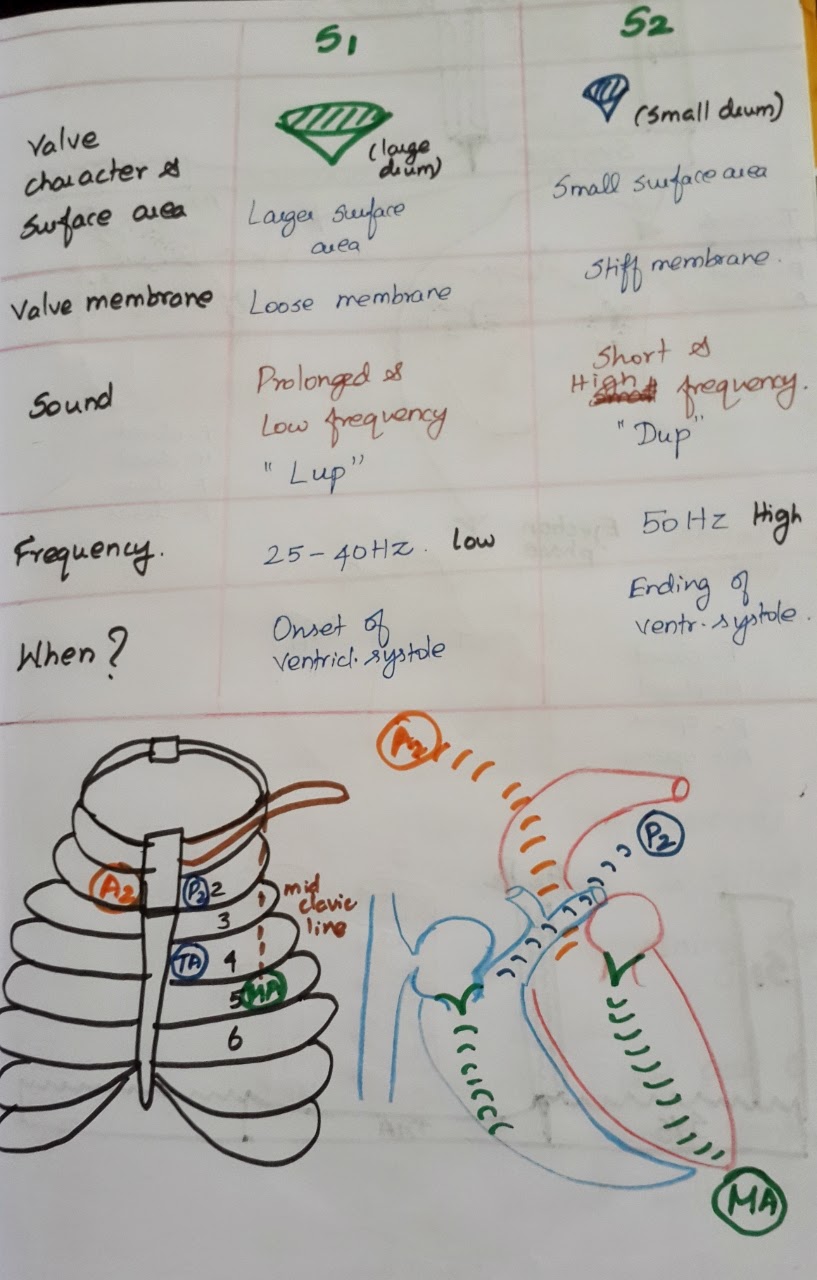 S1
S2
Valve
character &
surface area
(large
drum)
Larger surface
area
(small drum)
Small surface area
Valve membrane
Loose membrane
Stiff membrane.
Sound
Prolonged &
Low frequency
"Lup"
Short &
High frequency.
"Dup"
Frequency.
25-40Hz. low
50Hz High
When?
Onset of
ventricl. systole
Ending of
ventr. systole.
A2
P2
2
3
TA
4
5
MA
6
mid
clavic
line
A2
P2
MA